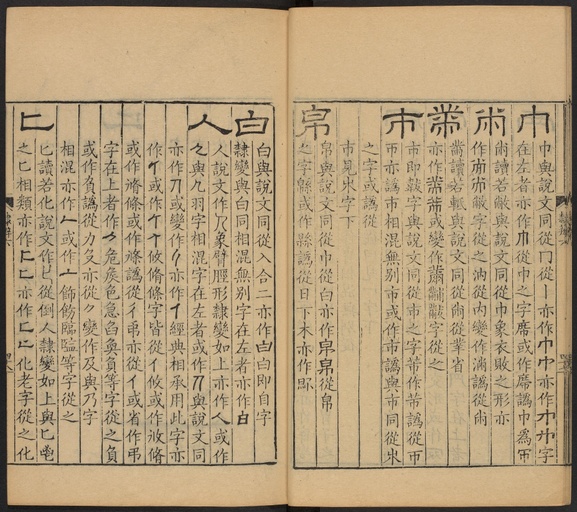 巾
巾與說文同從冂從丨亦作巾巾亦作巾巾字
在左者亦作巾從巾之字席或作席譌巾爲
㡀
㡀讀若敝與說文同從巾象衣敗之形亦
作㡀㡀敝字從之㳈從內變作滿譌從㡀
黹
黹讀若𦂳與說文同從㡀從丵省
亦作黹黹或變作黹黼黻字從之
巿
巿即韍字與說文同從巿之字芾作芾譌從
巿亦譌巿相混無別巿或作市譌與市同從
之字或譌從
巿見字下
帛
帛與說文同從巾從白亦作帛帛從帛
之字緜或作緜譌從日下木亦作
白
白與說文同從入合二亦作白白即自字
隸變與白同相混無別字在左者亦作白
人
人說文作人象臂脛形隸變如上亦作人或作
與几羽字相混字在左者或作與說文同
亦作或變作亦作亻經典相承用此字亦
作或作攸脩條字皆從亻攸或作攸脩
或作脩條或作脩譌從彳弔亦從亻或省作弔
字在上者作危矦色急臽奐負等字從之負
或作負譌從力久亦從變作及與乃字
相混亦作人或作飾飭臨臨等字從之
匕
匕讀若化說文作匕從倒人隸變如上與匕鬯
之匕相類亦作匕匕亦作匕匕化老字從之化